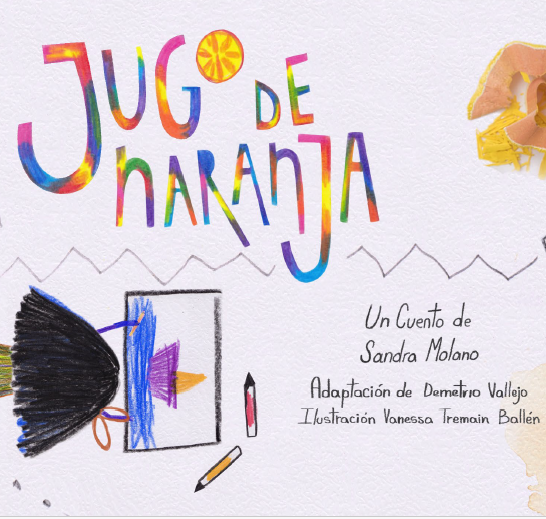 JUGO DE
NARANJA
Un Cuento de
Sandra Molano
Adaptación de Demetrio Vallejo
Ilustración Vanessa Tremain Ballén